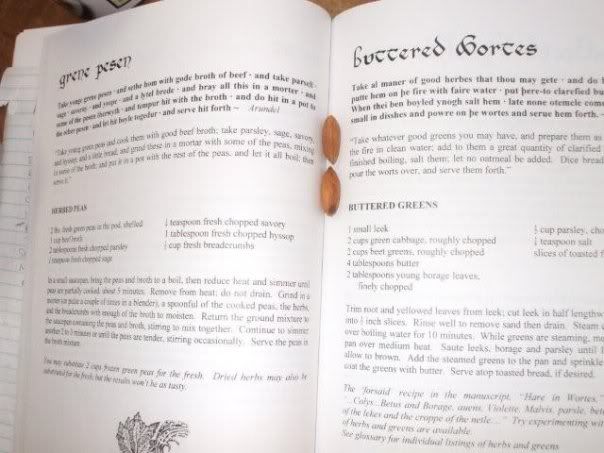 grene pesen
Take yonge grene pesen · and sethe hom with gode broth of beef · and take parsel·
sage · saverey · and ysope · and a lytel brede · and bray all this in a morter · and
some of the pesen therwyth · and tempur hit with the broth · and do hit in a pot to
the other pesen · and let hit boyle togedur · and serve hit forth ~ Arundel
"Take young green peas and cook them with good beef broth; take parsley, sage, savory,
and hyssop, and a little bread, and grind these in a mortar with some of the peas, mixing
in some of the broth; and put it in a pot with the rest of the peas, and let it all boil; then
serve it."
HERBED PEAS
2 lbs fresh green peas in the pod, shelled
1 cup beef broth
2 tablespoons fresh chopped parsley
teaspoon fresh chopped sage
teaspoon fresh chopped savory
1 tablespoon fresh chopped hyssop
cup fresh breadcrumbs
In a small saucepan, bring the peas and broth to a boil, then reduce heat and simmer until
peas are partially cooked, about 5 minutes. Remove from heat; do not drain. Grind in a
mortar (or pulse a couple of times in a blender), a spoonful of the cooked peas, the herbs,
and the breadcrumbs with enough of the broth to moisten. Return the ground mixture to
the saucepan containing the peas and broth, stirring to mix together. Continue to simmer
another 2 to 3 minutes or until the peas are tender, stirring occasionally. Serve the peas in
the broth mixture.
You may substitute 2 cups frozen green peas for the fresh. Dried herbs may also be
substituted for the fresh, but the results won't be as tasty.
Buttered Wortes
Take al maner of good herbes that thou may gete · and do
putte hem on þe fire with faire water · put þere-to clarefied bu
When thei ben boyled ynogh salt hem · late none otemele come
small in disshes and powre on þe wortes and serue hem forth. ~
"Take whatever good greens you may have, and prepare them as
the fire in clean water; add to them a great quantity of clarified
finished boiling, salt them; let no oatmeal be added. Dice bread
pour the worts over, and serve them forth."
BUTTERED GREENS
1 small leek
2 cups green cabbage, roughly chopped
2 cups beet greens, roughly chopped
4 tablespoons butter
2 tablespoons young borage leaves,
finely chopped
cup parsley, cho
teaspoon salt
slices of toasted f
Trim root and yellowed leaves from leek; cut leek in half lengthw
into inch slices. Rinse well to remove sand then drain. Steam
over boiling water for 10 minutes. While greens are steaming, me
pan over medium heat. Saute leeks, borage and parsley until l
allow to brown. Add the steamed greens to the pan and sprinkle
coat the greens with butter. Serve atop toasted bread, if desired.
The 'forsaid' recipe in the manuscript, "Hare in Wortes,"
"...Colys, Betus and Borage, auens, Violette, Malvis, parsle, bete
of the lekes and the croppe of the netle..." Try experimenting wit
of herbs and greens are available.
See glossary for individual listings of herbs and greens